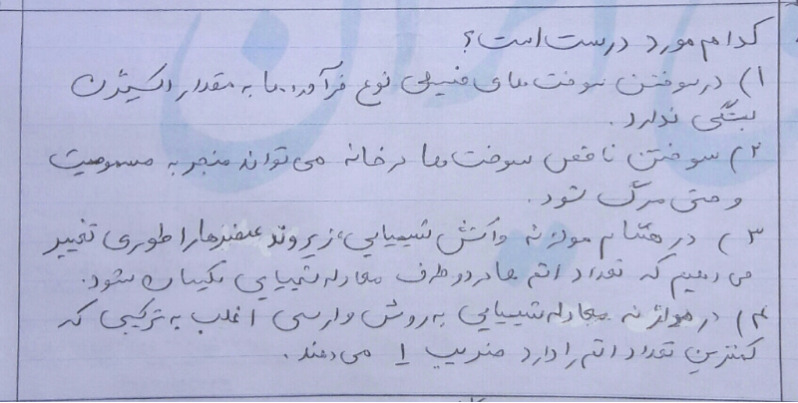 کدام مورد درست است؟
۱) در سوختن سوخت های فسیلی نوع فرآورده ها به مقدار اکسیژن
بستگی ندارد.
۲) سوختن ناقص سوخت ها در خانه می تواند منجر به مسمومیت
و حتی مرگ شود.
۳) در هنگام موازنه واکنش شیمیایی، زیروند عنصرها را طوری تغییر
می دهیم که تعداد اتم ها در دو طرف معادله شیمیایی یکسان شود.
۴) در موازنه معادله شیمیایی به روش وارسی اغلب به ترکیبی که
کمترین تعداد اتم را دارد ضریب ۱ می دهند.